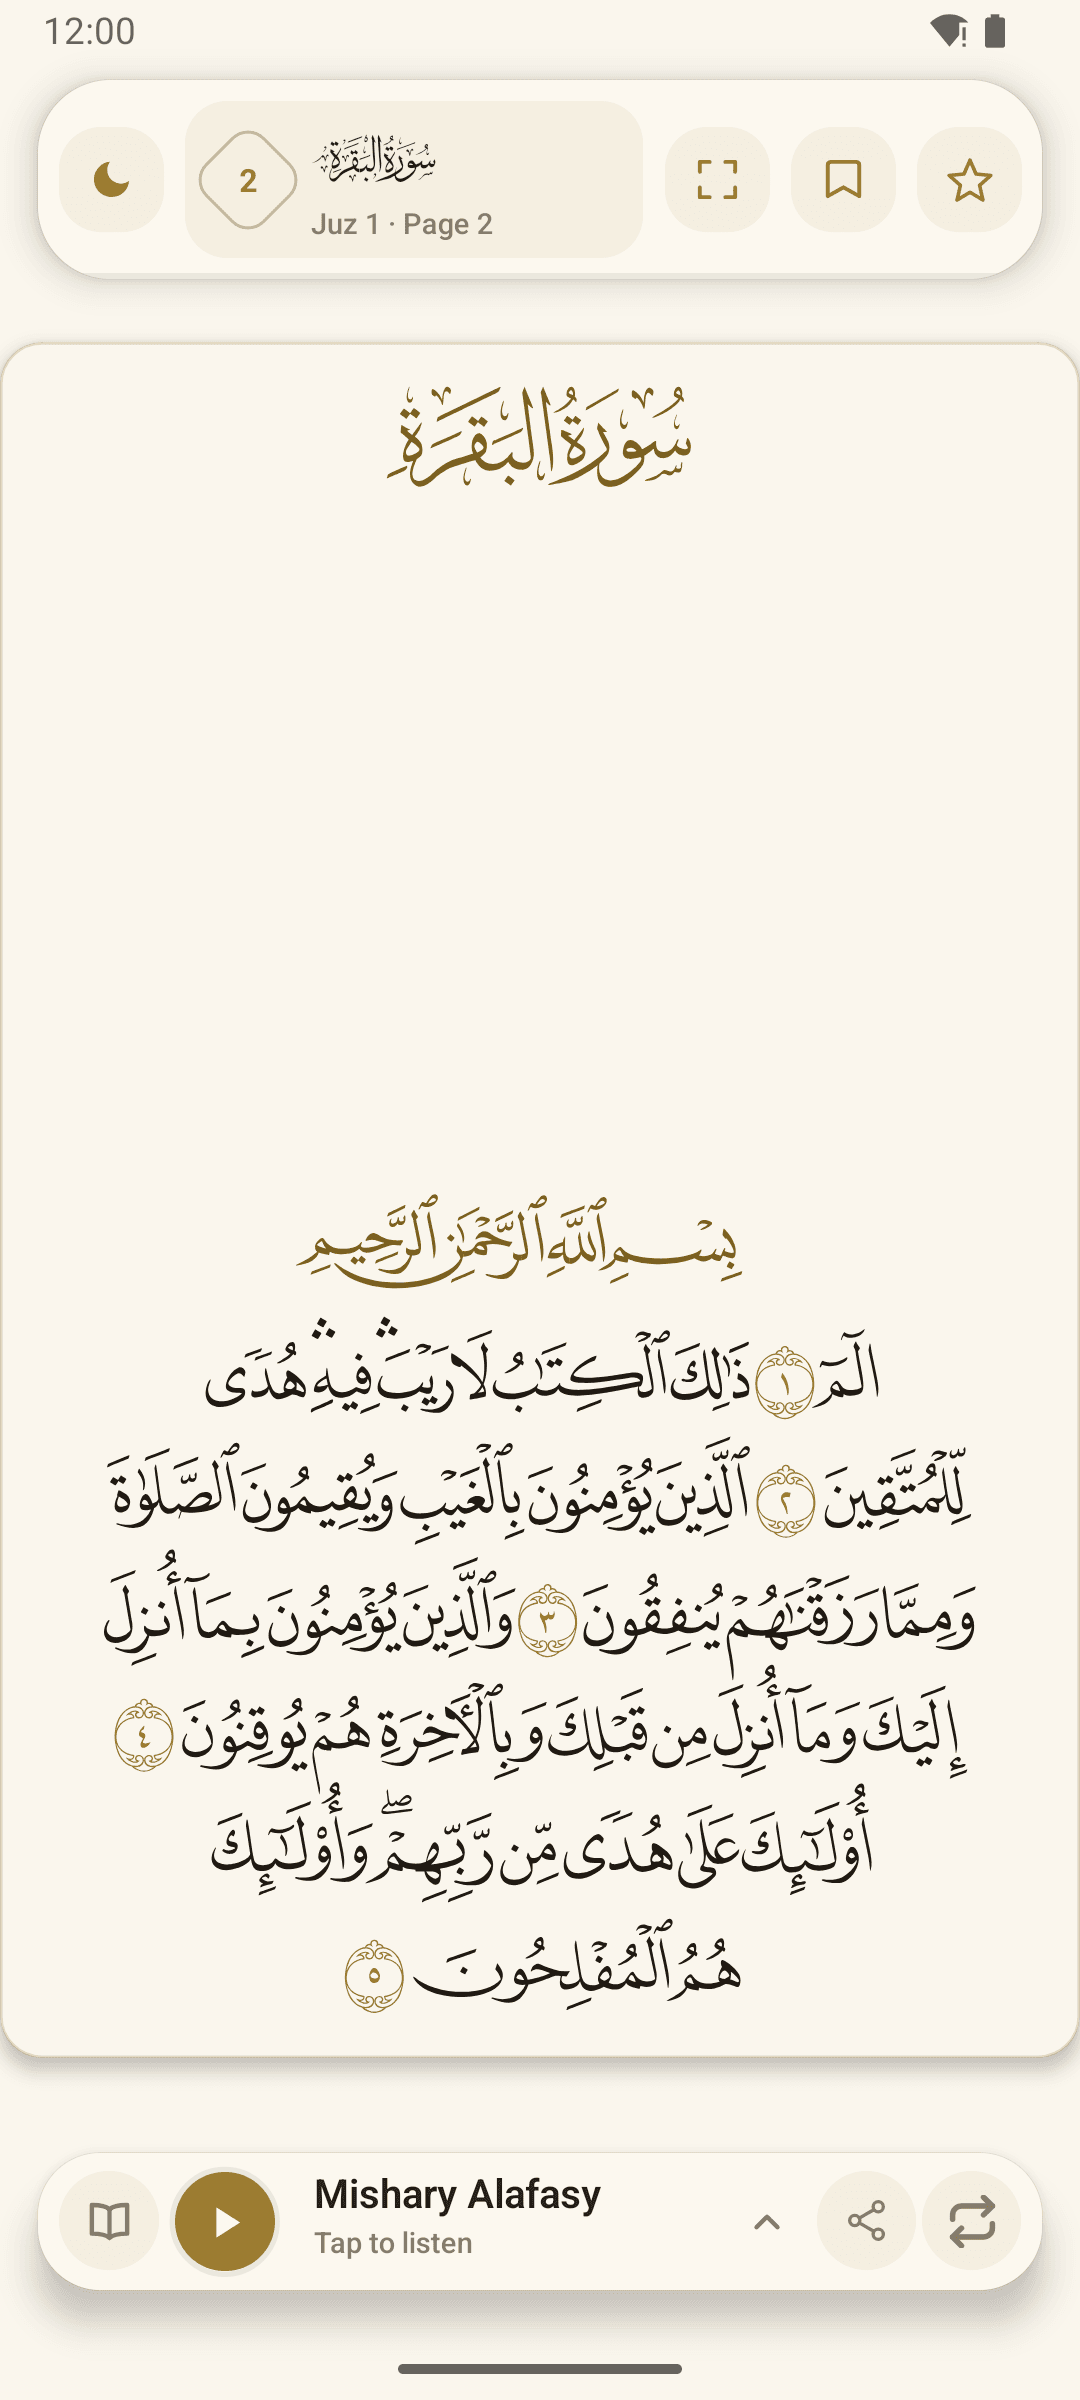 12:00
2
سُورَةُ البَقَرَةِ
Juz 1 · Page 2
سُورَةُ البَقَرَةِ
بِسۡمِ ٱللَّهِ ٱلرَّحۡمَٰنِ ٱلرَّحِيمِ
الٓمٓ ١ ذَٰلِكَ ٱلۡكِتَٰبُ لَا رَيۡبَۛ فِيهِۛ هُدٗى
لِّلۡمُتَّقِينَ ٢ ٱلَّذِينَ يُؤۡمِنُونَ بِٱلۡغَيۡبِ وَيُقِيمُونَ ٱلصَّلَوٰةَ
وَمِمَّا رَزَقۡنَٰهُمۡ يُنفِقُونَ ٣ وَٱلَّذِينَ يُؤۡمِنُونَ بِمَآ أُنزِلَ
إِلَيۡكَ وَمَآ أُنزِلَ مِن قَبۡلِكَ وَبِٱلۡأٓخِرَةِ هُمۡ يُوقِنُونَ ٤
أُوْلَٰٓئِكَ عَلَىٰ هُدٗى مِّن رَّبِّهِمۡۖ وَأُوْلَٰٓئِكَ
هُمُ ٱلۡمُفۡلِحُونَ ٥
Mishary Alafasy
Tap to listen